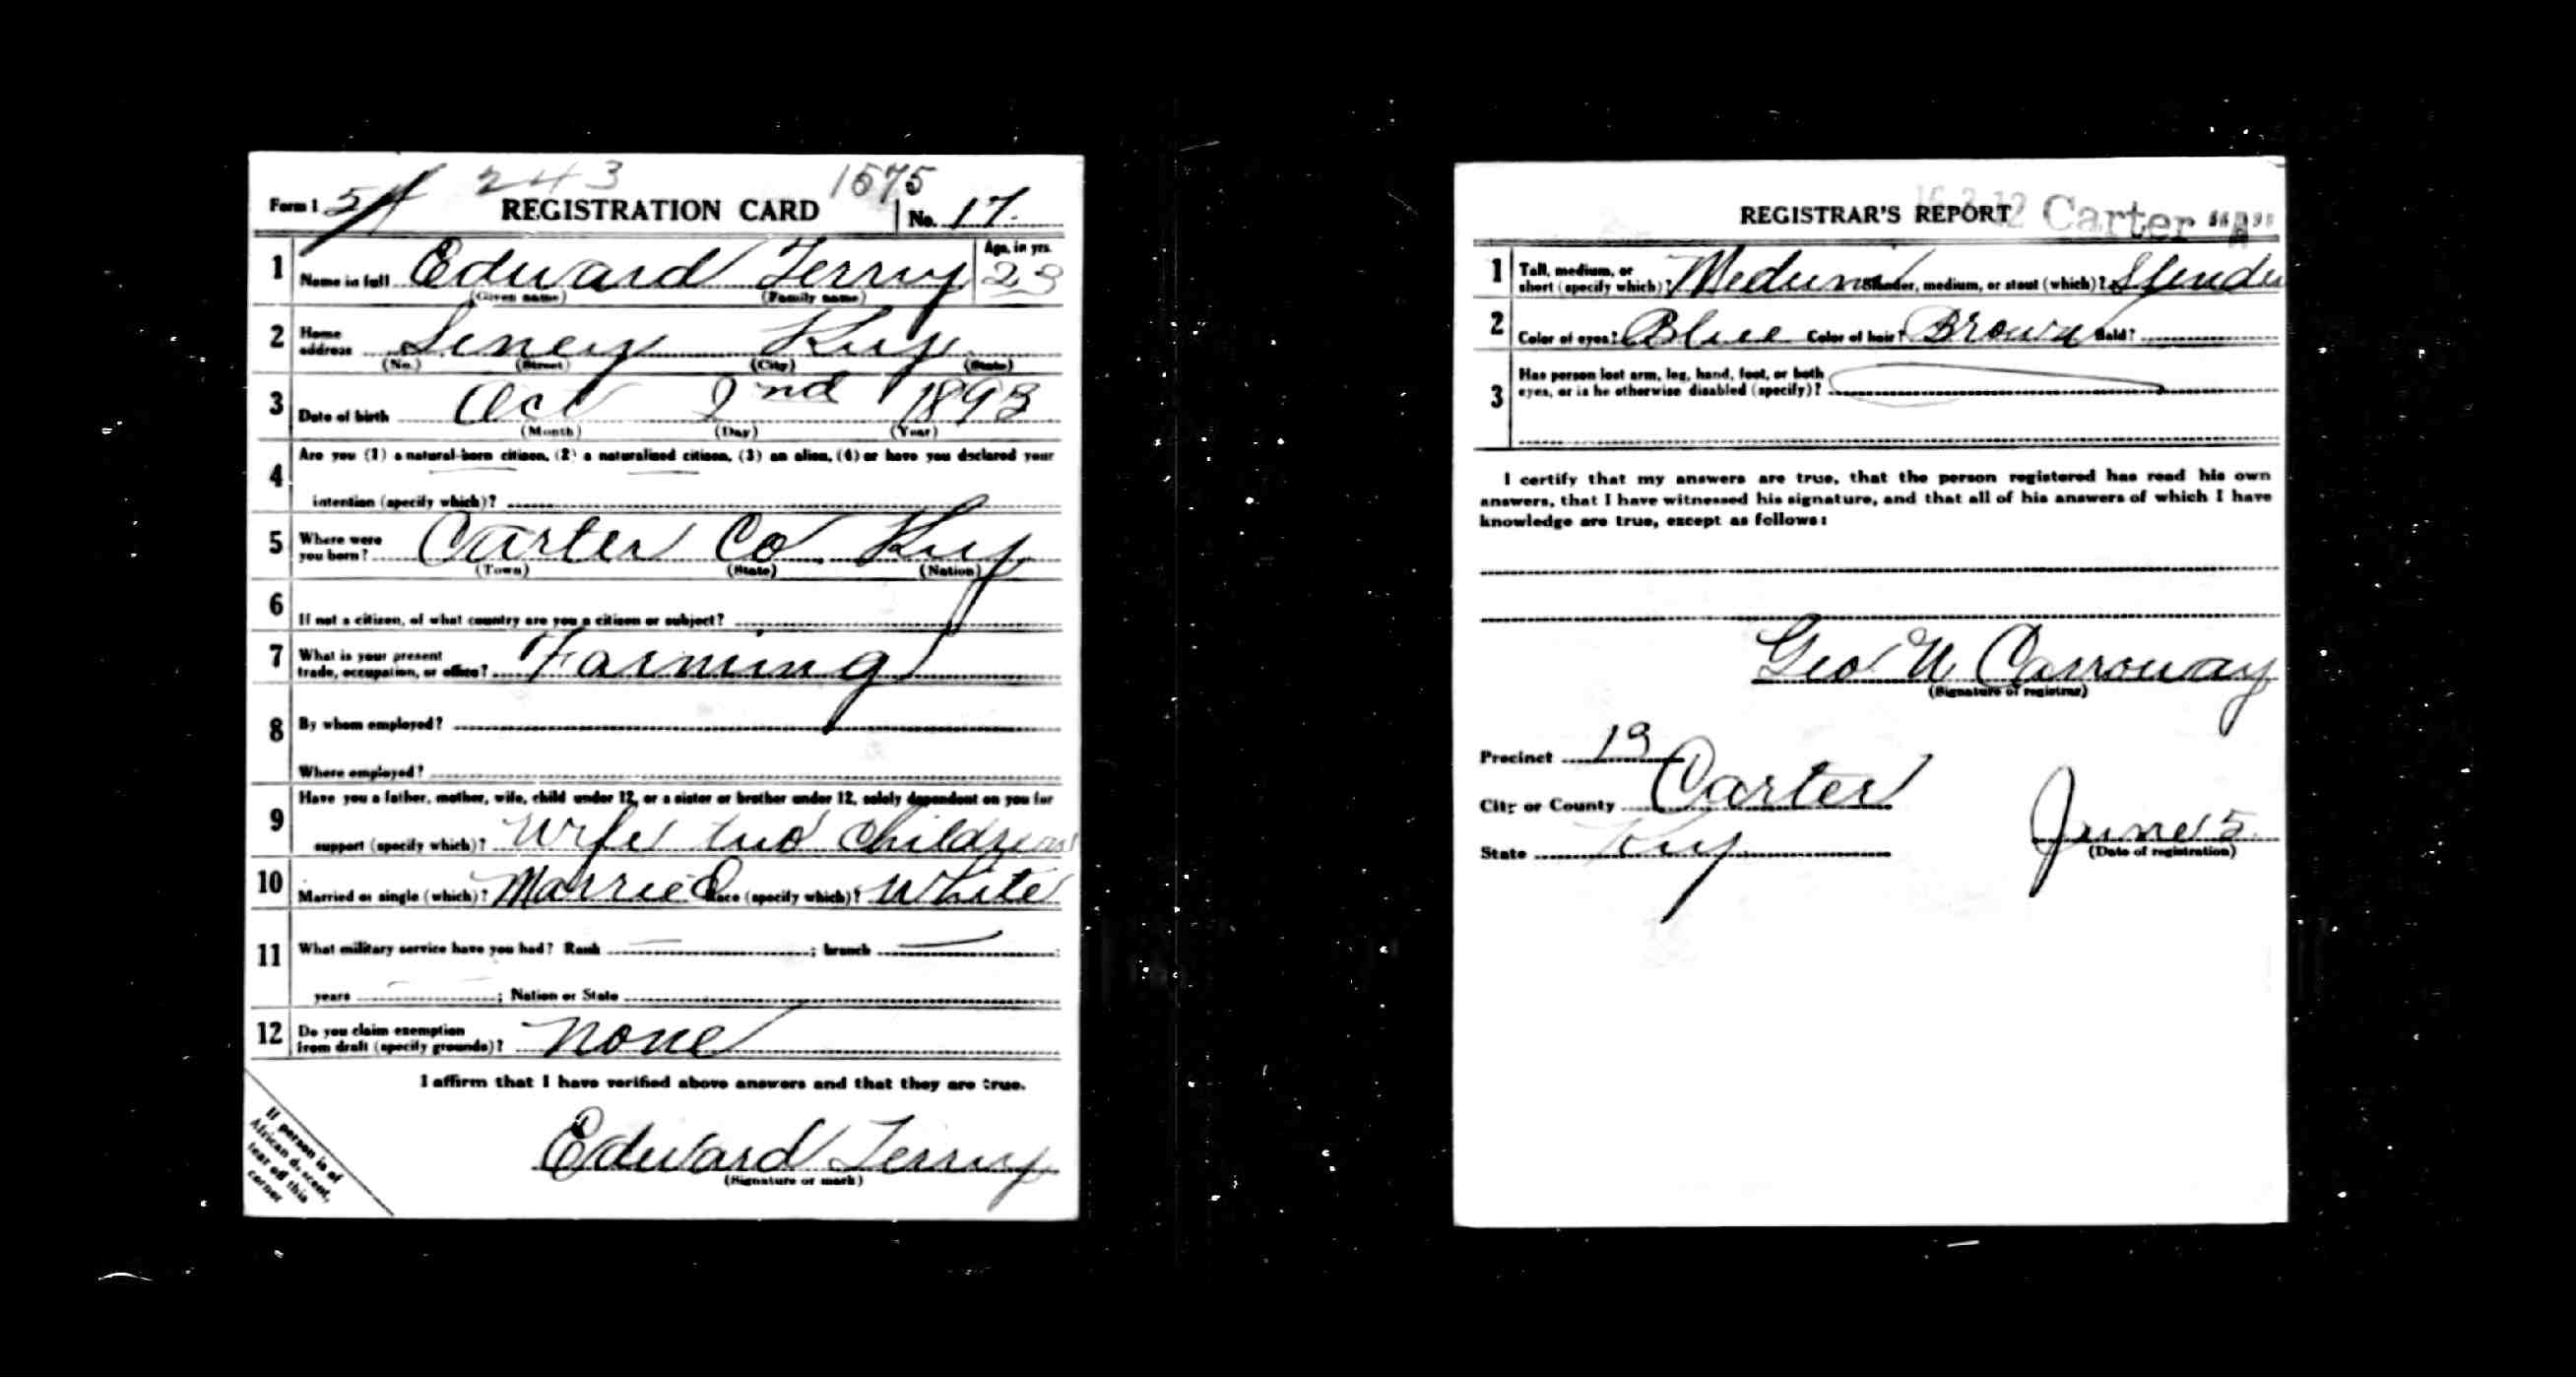 243 1575
Form 1 REGISTRATION CARD No. 17.
1 Name in full Edward Terry Age, in yrs. 23
(Given name) (Family name)
2 Home address Seney Kuy
(No.) (Street) (City) (State)
3 Date of birth Oct 2nd 1893
(Month) (Day) (Year)
4 Are you (1) a natural-born citizen, (2) a naturalized citizen, (3) an alien, (4) or have you declared your
intention (specify which)?
5 Where were you born? Carter Co, Kuy
(Town) (State) (Nation)
6 If not a citizen, of what country are you a citizen or subject?
7 What is your present trade, occupation, or office? Farming
8 By whom employed?
Where employed?
9 Have you a father, mother, wife, child under 12, or a sister or brother under 12, solely dependent on you for
support (specify which)? Wife two children
10 Married or single (which)? Married Race (specify which)? White
11 What military service have you had? Rank ; branch ;
years ; Nation or State
12 Do you claim exemption from draft (specify grounds)? None
I affirm that I have verified above answers and that they are true.
Edward Terry
(Signature or mark)
If person is of
African descent,
tear off this
corner
REGISTRAR'S REPORT Carter
1 Tall, medium, or short (specify which)? Medium Slender, medium, or stout (which)? Slender
2 Color of eyes? Blue Color of hair? Brown Bald?
3 Has person lost arm, leg, hand, foot, or both
eyes, or is he otherwise disabled (specify)?
I certify that my answers are true, that the person registered has read his own
answers, that I have witnessed his signature, and that all of his answers of which I have
knowledge are true, except as follows:
Geo W Carroway
(Signature of registrar)
Precinct 19
City or County Carter
State Kuy
June 5
(Date of registration)